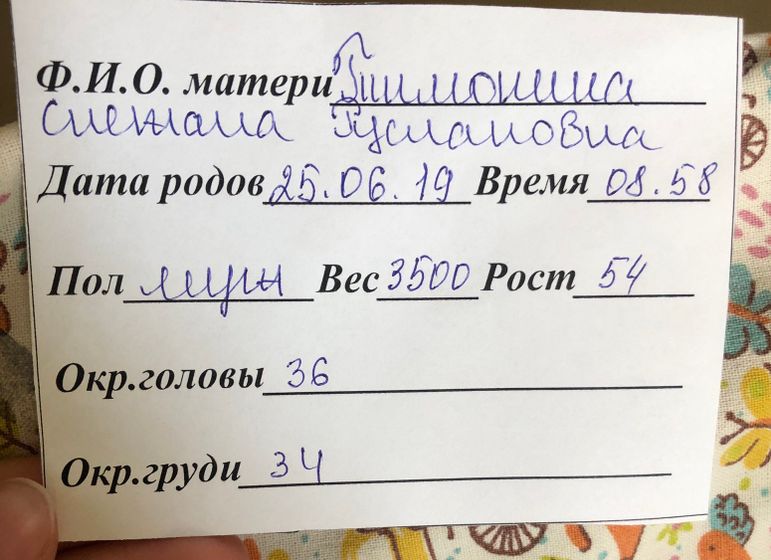 Ф.И.О. матери Тимонина
Снежана Руслановна
Дата родов 25.06.19 Время 08.58
Пол муж Вес 3500 Рост 54
Окр.головы 36
Окр.груди 34